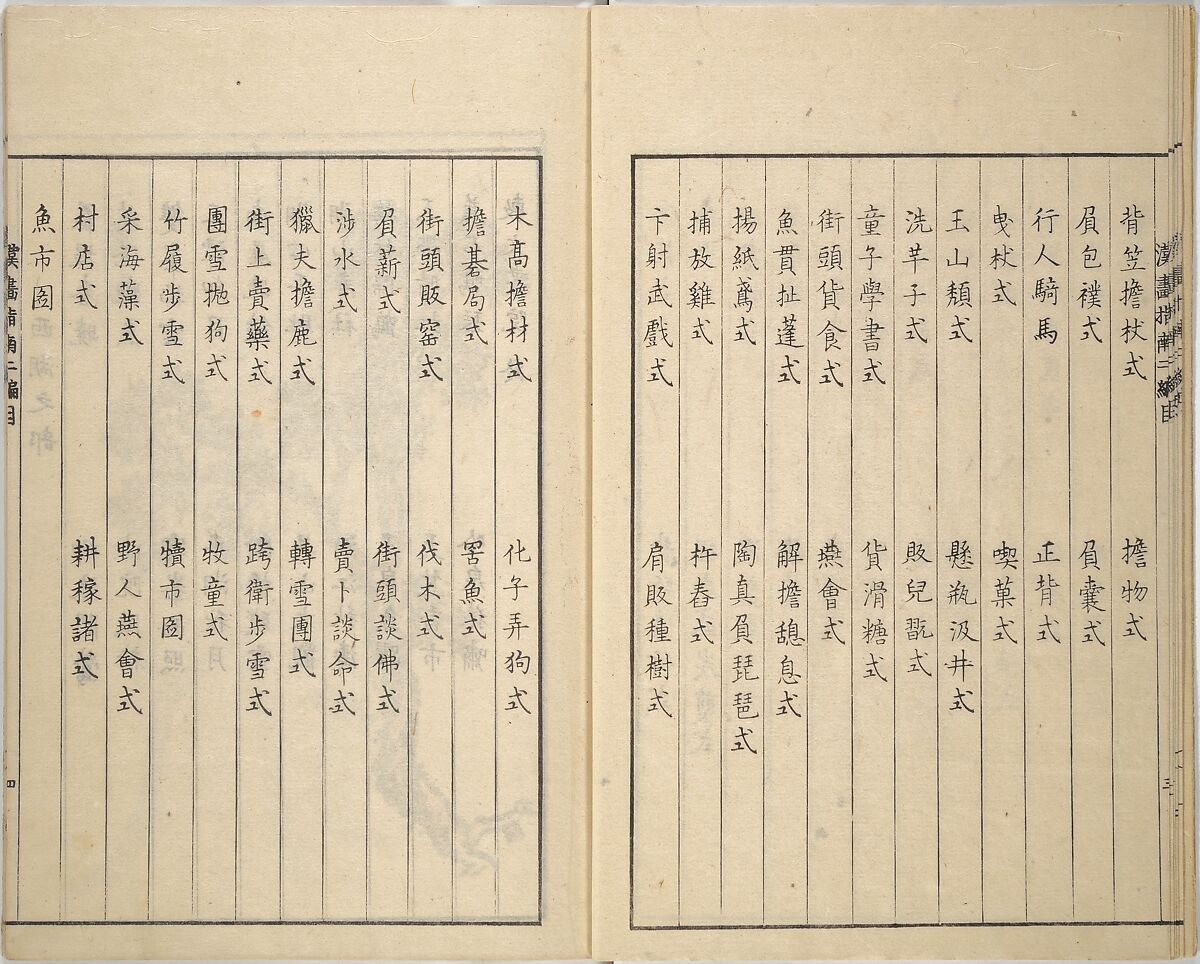 背笠擔杖式　擔物式
負包襆式　負囊式
行人騎馬　正背式
曳杖式　喫菓式
玉山頽式　懸瓶汲井式
洗芋子式　販兒翫式
童子學書式　貨滑糖式
街頭貨食式　燕會式
魚貫扯蓬式　解擔憩息式
揚紙鳶式　陶真負琵琶式
捕放雞式　杵舂式
卞射武戲式　肩販種樹式
漢畫指南二編目　三
木高擔材式　化子弄狗式
擔碁局式　罟魚式
街頭販窑式　伐木式
負薪式　街頭談佛式
涉水式　賣卜談命式
獵夫擔鹿式　轉雪團式
街上賣藥式　跨衛步雪式
團雪拋狗式　牧童式
竹履步雪式　犢市圖
采海藻式　野人燕會式
村店式　耕稼諸式
魚市圖
漢畫指南二編目　四